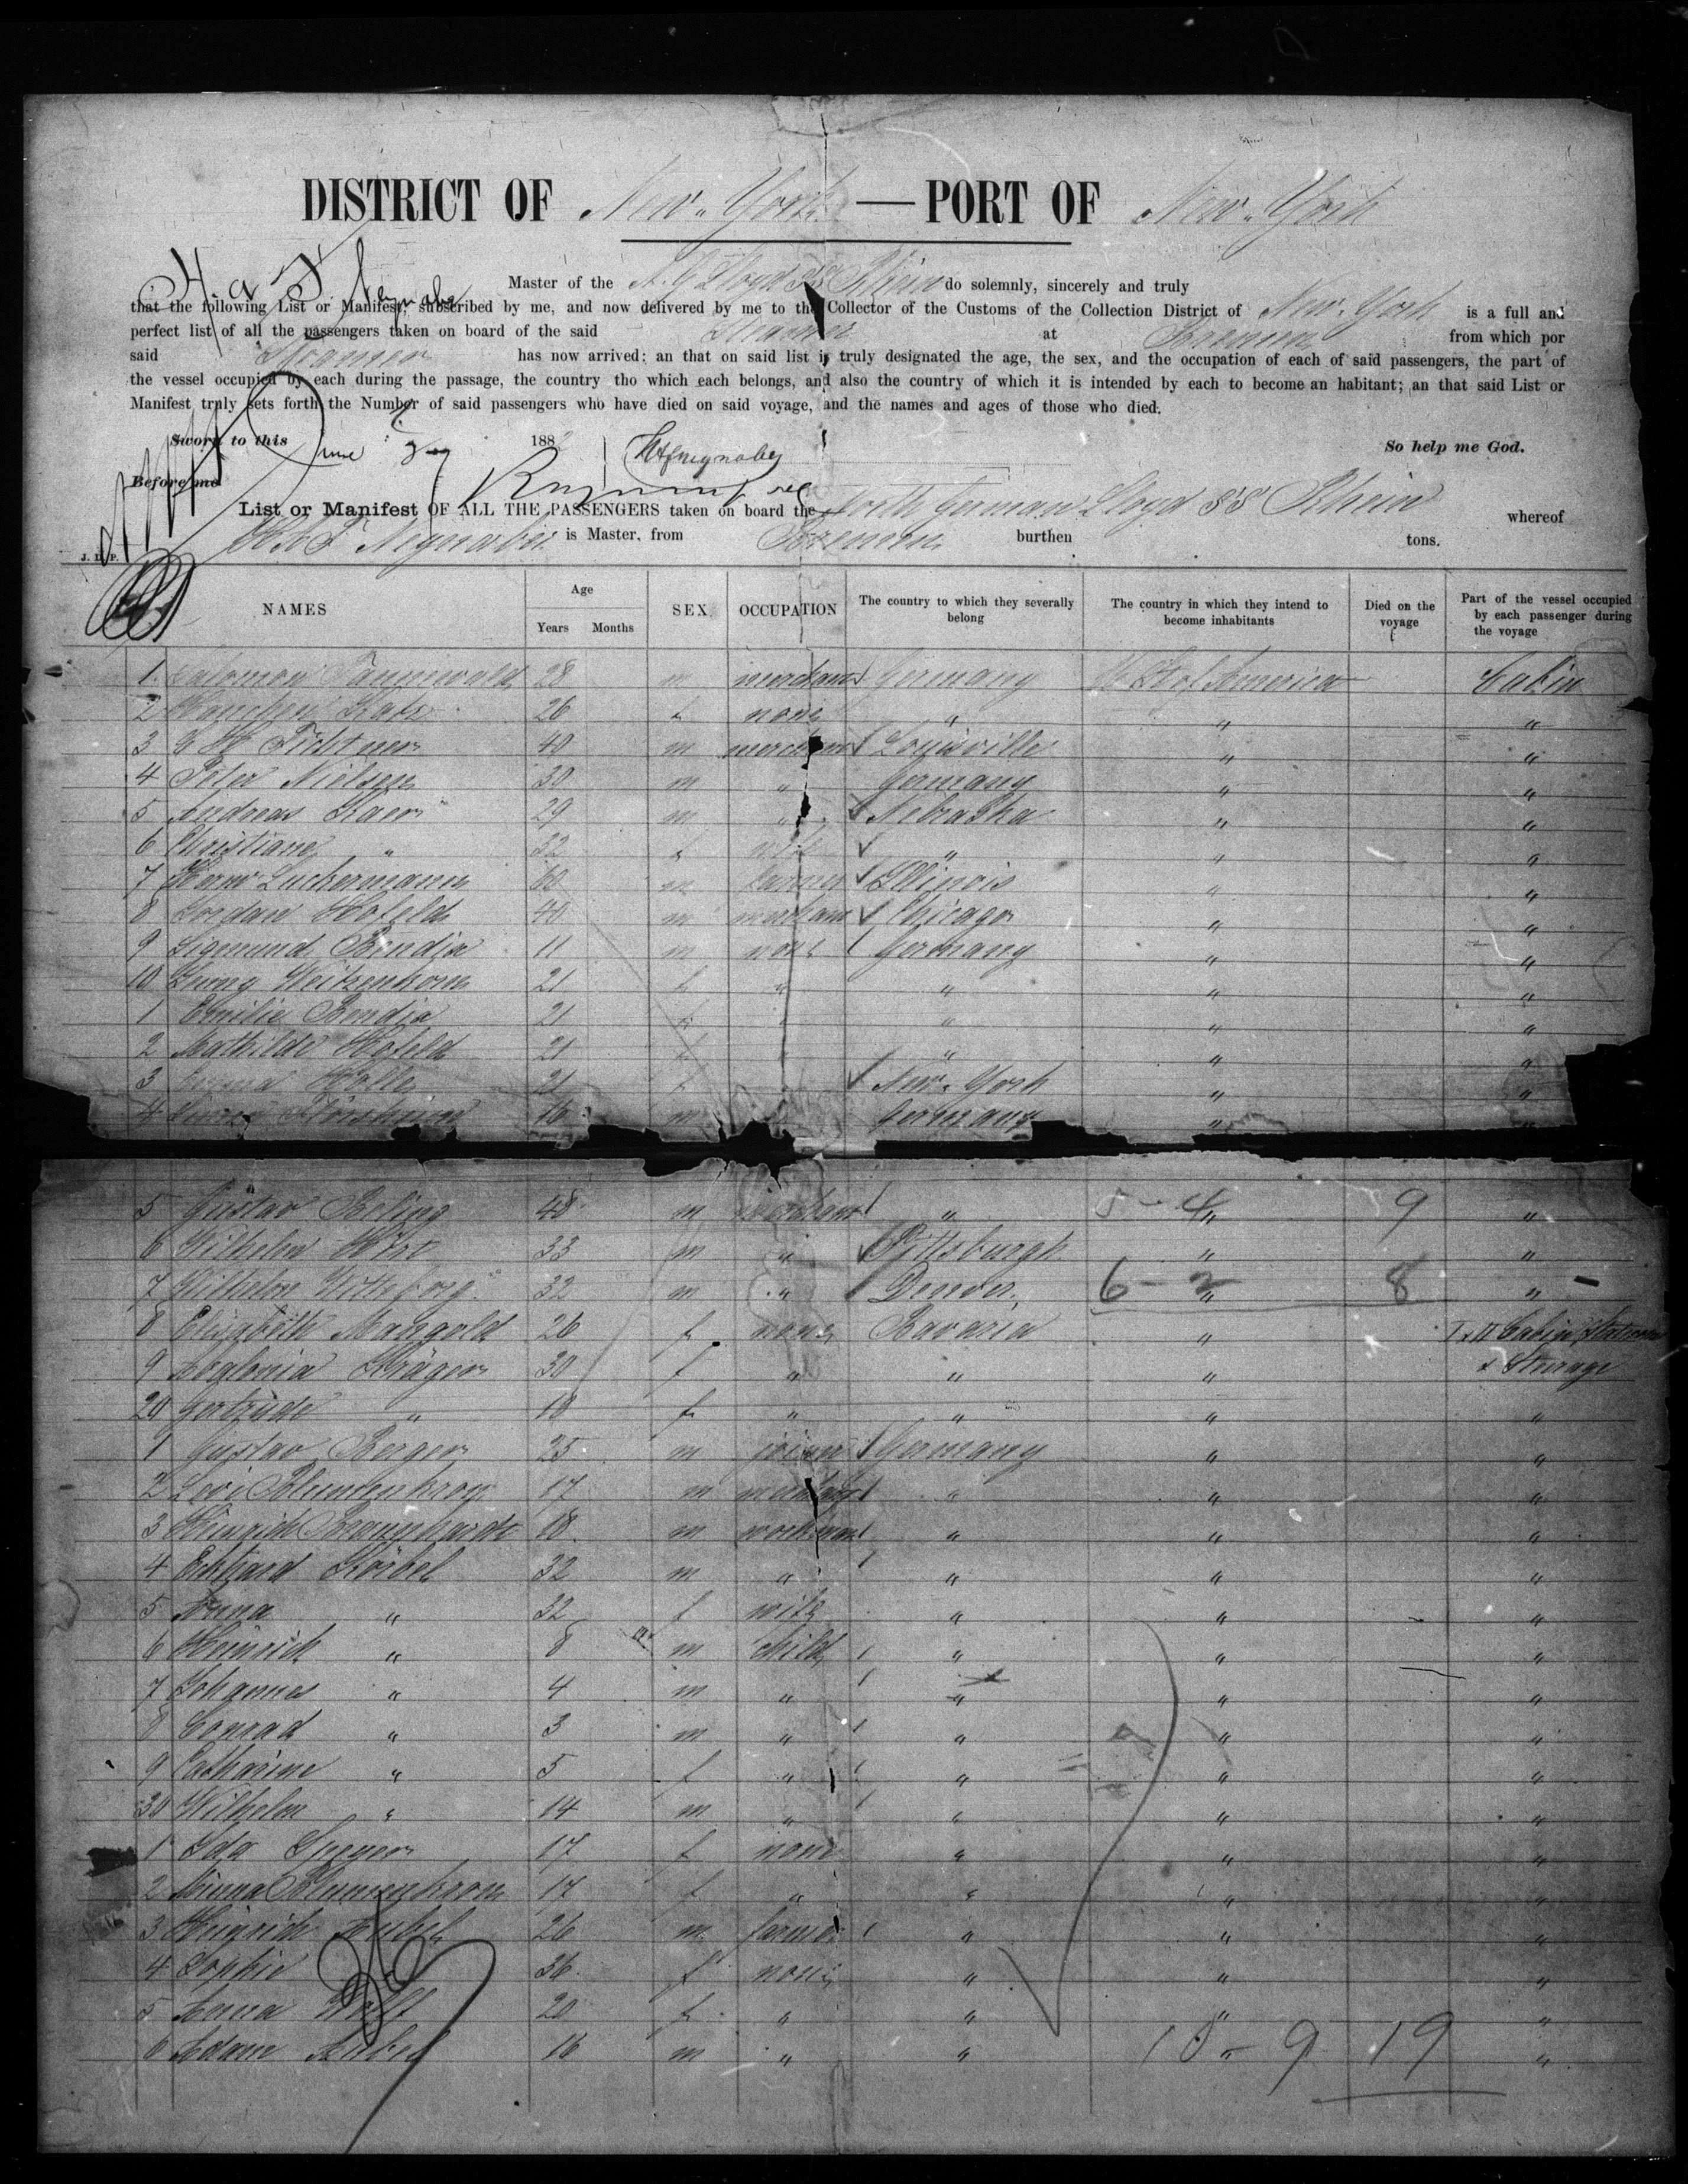 DISTRICT OF New York — PORT OF New York
H. A. F. Neynaber Master of the N. G. Lloyd SS Rhein do solemnly, sincerely and truly
that the following List or Manifest, subscribed by me, and now delivered by me to the Collector of the Customs of the Collection District of New York is a full and
perfect list of all the passengers taken on board of the said Steamer at Bremen from which por
said Steamer has now arrived: an that on said list is truly designated the age, the sex, and the occupation of each of said passengers, the part of
the vessel occupied by each during the passage, the country tho which each belongs, and also the country of which it is intended by each to become an habitant; an that said List or
Manifest truly sets forth the Number of said passengers who have died on said voyage, and the names and ages of those who died.
Sworn to this June 188 HAF Neynaber So help me God.
Before me
List or Manifest OF ALL THE PASSENGERS taken on board the North German Lloyd SS Rhein whereof
H A F Neynaber is Master, from Bremen burthen tons.
J. D. P.
NAMES Age Years Months SEX OCCUPATION The country to which they severally belong The country in which they intend to become inhabitants Died on the voyage Part of the vessel occupied by each passenger during the voyage
1 Salomon Tannenwald 28 m merchant Germany U St of America Cabin
2 Katz 26 f none " " "
3 Fichtner 40 m merchant Louisville " "
4 Peter Nielsen 30 m " Germany " "
5 Andreas 29 m " Nebraska " "
6 Christiane " 32 f wife " " "
7 60 m farmer Illinois " "
8 Hofeld 40 m merchant Chicago " "
9 Sigmund Bendix 11 m none Germany " "
10 21 f " " " "
1 Emilie Bendix 21 f " " " "
2 Mathilde Hofeld 21 f " " " "
3 21 f New York " "
4 16 m Germany " "
5 Gustav Beling 48 m merchant " " "
5 - 4 9
6 Wilhelm 33 m " Pittsburgh " "
7 Wilhelm 32 m " Denver " "
6 - 2 8
8 Elisabeth Mangold 26 f none Bavaria " I & II Cabin
9 Kräger 30 f " " " & Steerage
20 Gertrude " 18 f " " " "
1 Gustav Berger 25 m joiner Germany " "
2 Levi Blumenkron 17 m merchant " " "
3 Heinrich Braunhardt 18 m workman " " "
4 Eckhard Körbel 32 m " " " "
5 Anna " 32 f wife " " "
6 Heinrich " 8 m child " " "
7 Johannes " 4 m " " " "
8 Conrad " 3 m " " " "
9 Catharine " 5 f " " " "
30 Wilhelm " 14 m " " " "
1 Ida Speyer 17 f none " " "
2 Minna Blumenkron 17 f " " " "
3 Heinrich Aubel 26 m farmer " " "
4 Sophie 36 f none " " "
5 Anna 20 f " " " "
6 Adam Aubel 16 m " " " "
10 - 9 19